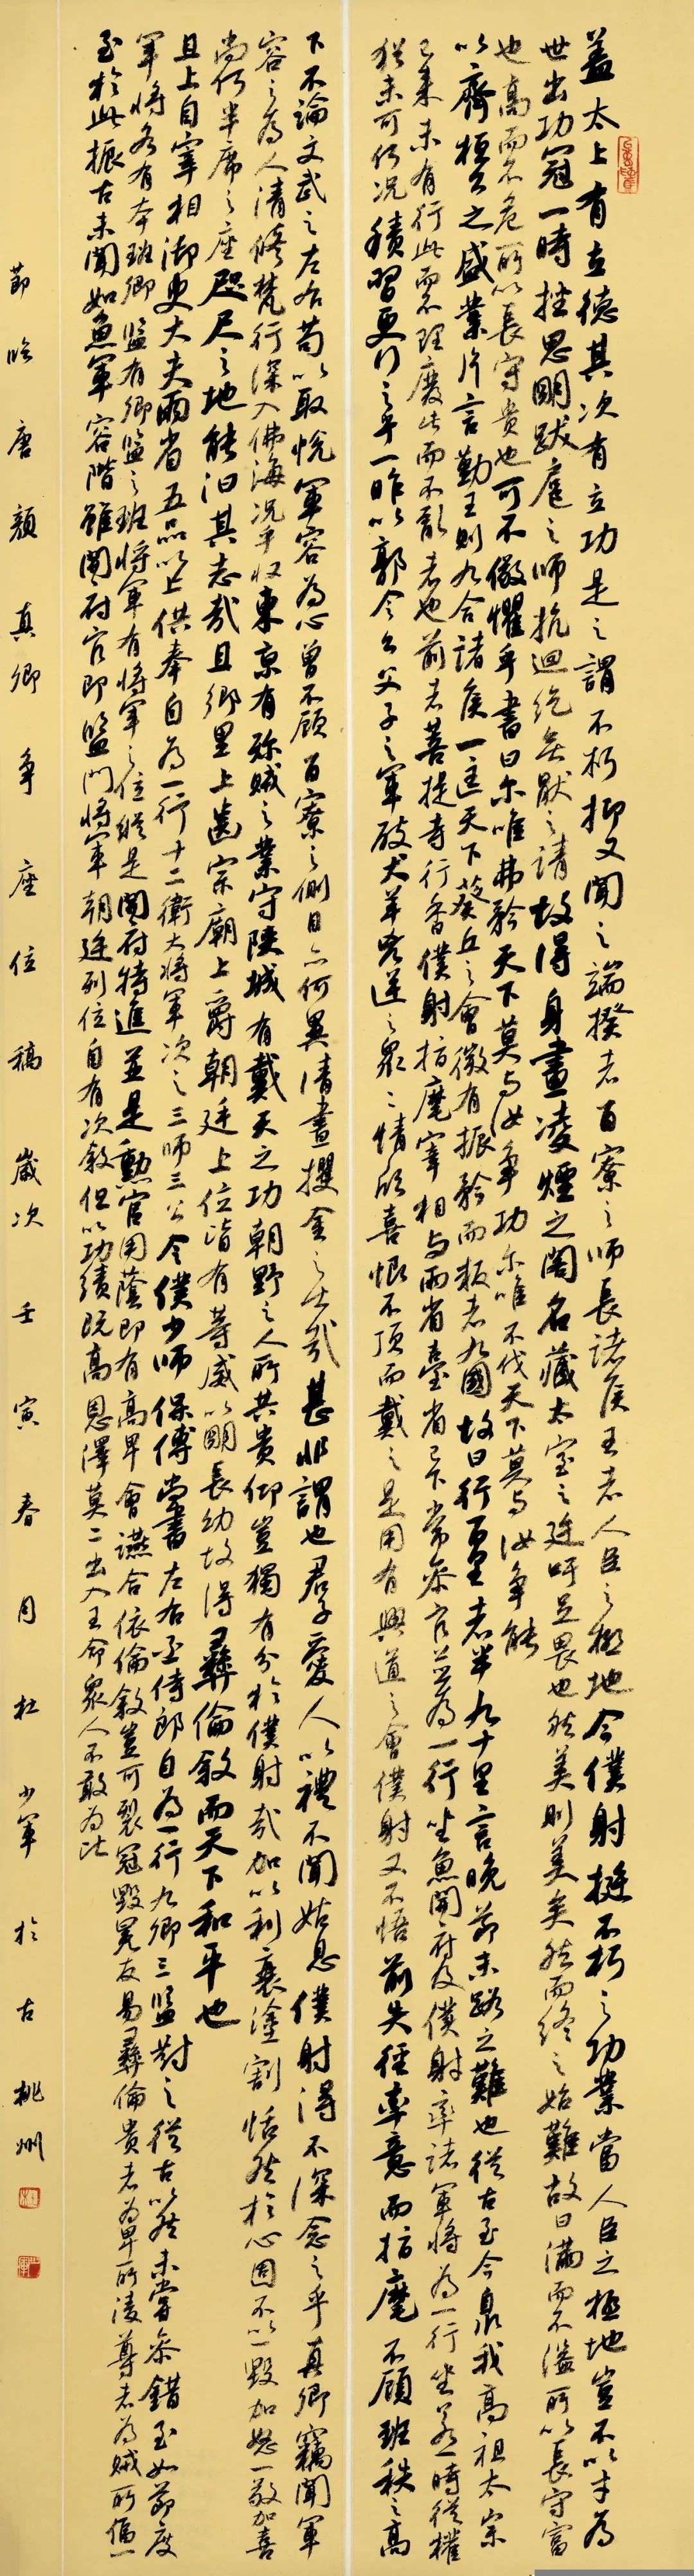 蓋太上有立德其次有立功是之謂不朽抑又聞之端揆者百寮之師長諸侯王者人臣之極地今僕射挺不朽之功業當人臣之極地豈不以才為
世出功冠一時挫思明跋扈之師抗迴紇無厭之請故得身畫凌煙之閣名藏太室之廷吁足畏也然美則美矣然而終之始難故曰滿而不溢所以長守富
也高而不危所以長守貴也可不儆懼乎書曰尔唯弗矜天下莫與汝爭功尔唯不伐天下莫與汝爭能
以齊桓公之盛業片言勤王則九合諸侯一匡天下葵丘之會微有振矜而叛者九國故曰行百里者半九十里言晚節末路之難也從古至今泉我高祖太宗
已來未有行此而不理廢此而不亂者也前者菩提寺行香僕射指麾宰相與兩省臺省已下常參官並為一行坐魚開府及僕射率諸軍將為一行坐若一時從權
猶未可何況積習更行之乎一昨以郭令公父子之軍破犬羊兇逆之眾眾情欣喜恨不頂而戴之是用有興道之會僕射又不悟前失徑率意而指麾不顧班秩之高
下不論文武之左右苟以取悅軍容為心曾不顧百寮之側目亦何異清晝攫金之士哉甚非謂也君子愛人以禮不聞姑息僕射得不深念之乎真卿竊聞軍
容之為人清修梵行深入佛海況乎收東京有殄賊之業守陝城有戴天之功朝野之人所共貴仰豈獨有分於僕射哉加以利衰塗割恬然於心固不以一毀加怒一敬加喜
尚何半席之座咫尺之地能汩其志哉且鄉里上齒宗廟上爵朝廷上位皆有等威以明長幼故得彝倫敘而天下和平也
且上自宰相御史大夫兩省五品以上供奉自為一行十二衛大將軍次之三師三公令僕少師保傅尚書左右丞侍郎自為一行九卿三監對之從古以然未嘗參錯至如節度
軍將各有本班卿監有卿監之班將軍有將軍之位縱是開府特進並是勳官用蔭即有高卑會讌合依倫敘豈可裂冠毀冕反易彝倫貴者為卑所凌尊者為賊所偪一
至於此振古未聞如魚軍容階雖開府官即監門將軍朝廷列位自有次敘但以功績既高恩澤莫二出入王命眾人不敢為比
節臨唐顏真卿爭座位稿歲次壬寅春月杜少軍於古桃州